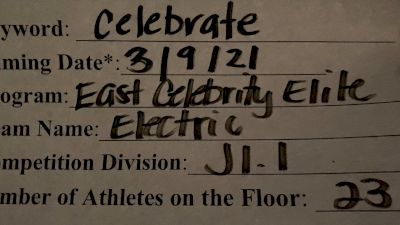 yword: Celebrate
ming Date*: 3/9/21
ogram: East Celebrity Elite
am Name: Electric
mpetition Division: J1.1
mber of Athletes on the Floor: 23